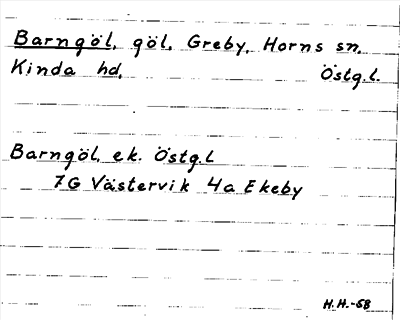 Barngöl, göl, Greby, Horns sn.
Kinda hd, Östg.l.
Barngöl, ek. Östg.l
7G Västervik 4a Ekeby
H.H.-58